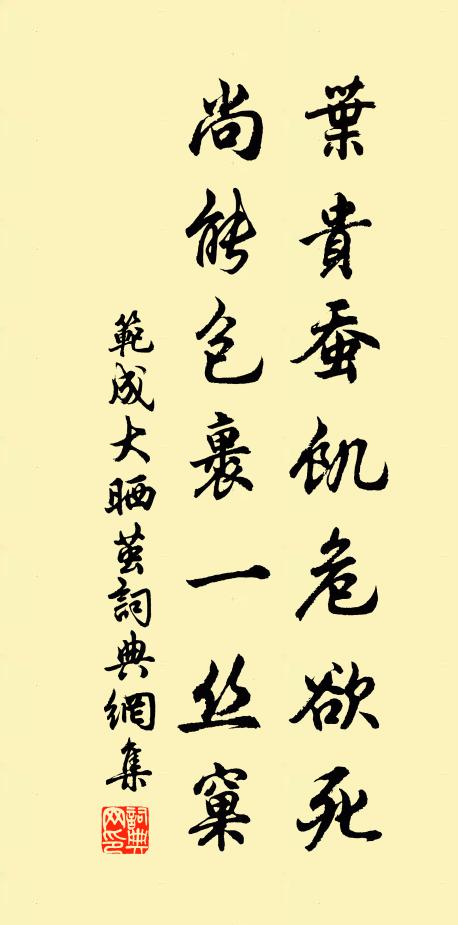 葉貴蚕飢危欲死
尚能包裹一丝窠
範成大晒茧詞典網集
詞典网印